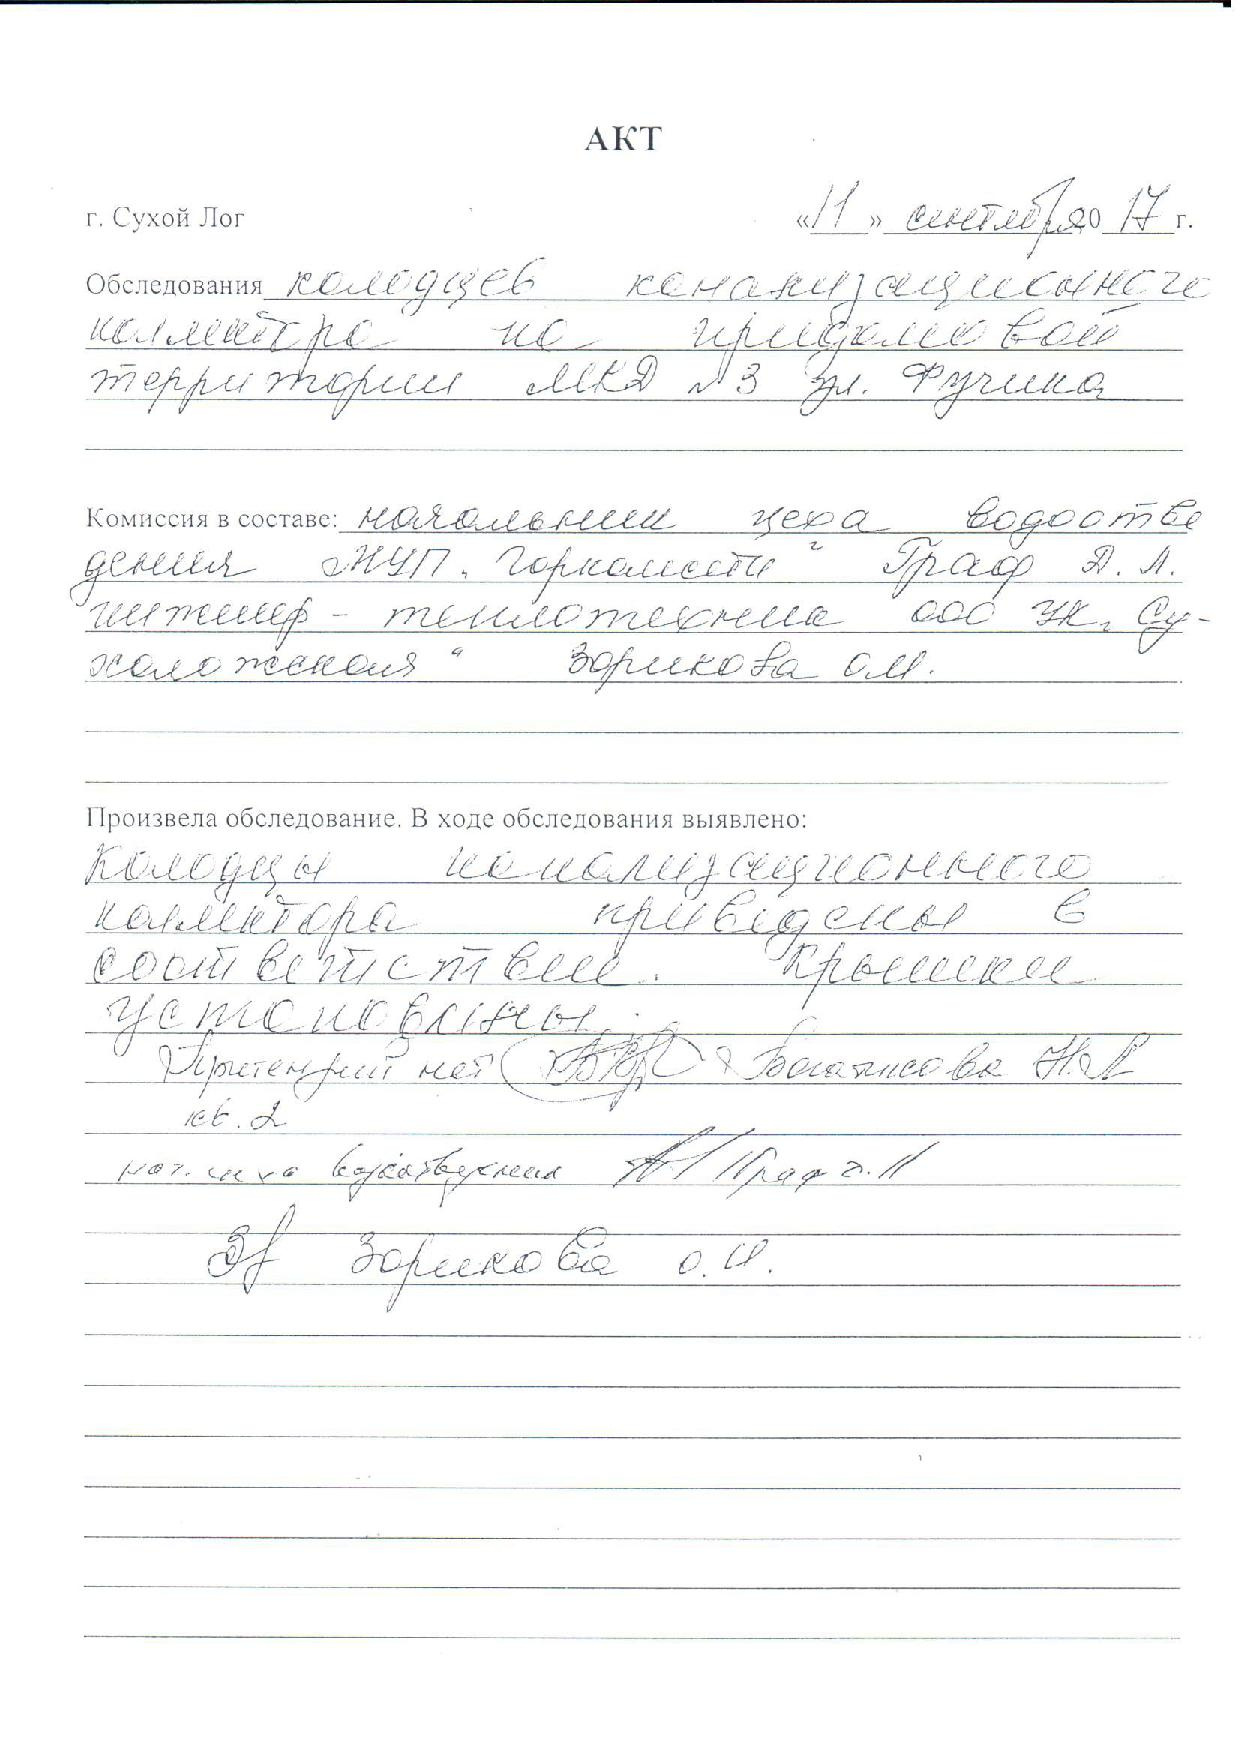 АКТ
г. Сухой Лог «11» сентября 20 17 г.
Обследования колодцев канализационного
коллектора на придомовой
территории МКД №3 ул. Фучика
Комиссия в составе: начальник цеха водоотве
дения МУП „Горкомсети" Граф Д. Л.
инженер - теплотехника ООО УК „Су-
холожская" Зорикова О.И.
Произвела обследование. В ходе обследования выявлено:
Колодцы канализационного
коллектора приведены в
соответствии. Крышки
установлены.
Притензий нет Н.А
кв. 2
нач. цеха водоотведения Граф Д.Л
Зорикова О.И.